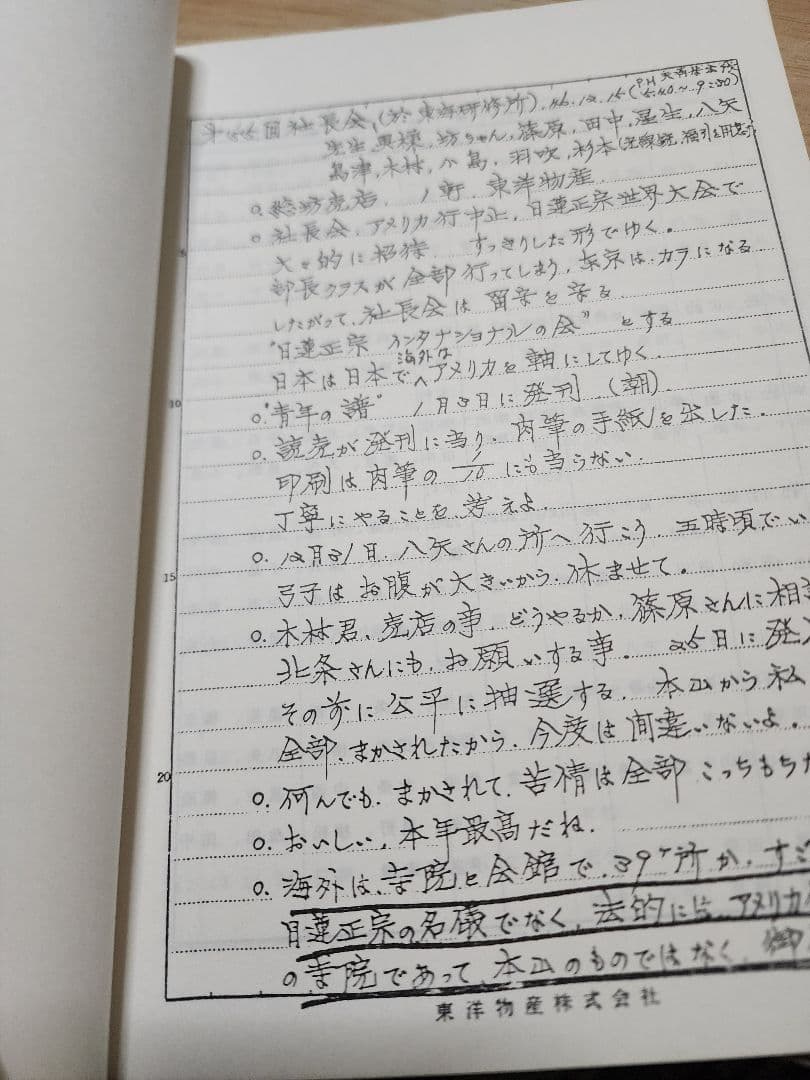 第66回社長会、(於 東洋研修所)、46.12.15(5:40〜9:30)
先生、奥様、坊ちゃん、篠原、田中、湿生、八矢
島津、木村、小島、羽吹、杉本
o. 総坊売店、1軒、東洋物産.
o 社長会、アメリカ行中止、日蓮正宗世界大会で
大々的に招待 すっきりした形でゆく。
部長クラスが全部行ってしまう、東京は、カラになる
したがって、社長会は留守を守る
"日蓮正宗 インタナショナルの会" とする
日本は日本で海外はアメリカを軸にしてゆく.
o "青年の譜" 1月3日に発刊 (朝)
o. 読売が発刊に当り、肉筆の手紙を出した.
印刷は肉筆の1/10にも当らない.
丁寧にやることを考えよ.
o. 12月31日、八矢さんの所へ行こう 五時頃でい
弓子はお腹が大きいから、休ませて。
o. 木村君、売店の事、どうやるか、篠原さんに相談
北条さんにも、お願いする事. 26日に発
その前に公平に抽選する、本山から私
全部、まかされたから、今度は間違いないよ.
o. 何んでも、まかされて、苦情は全部こっちもちだ
o. おいしい、本年最高だね.
o. 海外は、寺院と会館で、39ヶ所か、すご
日蓮正宗の名儀でなく、法的には、アメリカ
の寺院であって、本山のものではなく、御
東洋物産株式会社
5
10
15
20